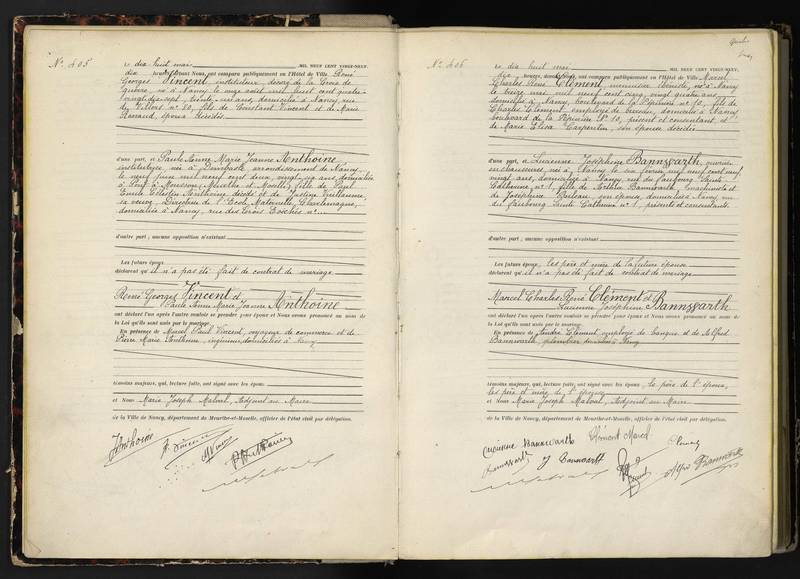 N° 405
Le dix huit mai MIL NEUF CENT VINGT-NEUF,
dix heures, devant Nous, ont comparu publiquement en l'Hôtel de Ville René
Georges Vincent instituteur, décoré de la Croix de
guerre, né à Nancy le onze août mil huit cent quatre-
vingt-dix-sept, trente-un ans, domicilié à Nancy, rue
de Villers n° 20, fils de Constant Vincent et de Marie
époux décédés.
d'une part, et Paule Anne Marie Jeanne Anthoine,
institutrice, née à Dombasle arrondissement de Nancy,
le neuf juin mil neuf cent deux, vingt-six ans, domiciliée
à Pont à Mousson (Meurthe et Moselle), fille de Paul
Emile Célestin Anthoine décédé et de Justine Vuillaume,
sa veuve, Directrice de l'Ecole Maternelle Charlemagne,
domiciliée à Nancy, rue des Trois Evêchés n°
d'autre part ; aucune opposition n'existant
Les futurs époux
déclarent qu'il n'a pas été fait de contrat de mariage
René Georges Vincent et
Paule Anne Marie Jeanne Anthoine
ont déclaré l'un après l'autre vouloir se prendre pour époux et Nous avons prononcé au nom de
la Loi qu'ils sont unis par le mariage.
En présence de Marcel Paul Vincent, voyageur de commerce et de
Pierre Marie Anthoine, ingénieur, domiciliés à Nancy
témoins majeurs, qui, lecture faite, ont signé avec les époux
et Nous Marie Joseph Malval, Adjoint au Maire
de la Ville de Nancy, département de Meurthe-et-Moselle, officier de l'état civil par délégation.
J Anthoine
Vincent
N° 406
Le dix huit mai MIL NEUF CENT VINGT-NEUF,
dix heures, devant Nous, ont comparu publiquement en l'Hôtel de Ville Marcel
Charles René Clément, menuisier ébéniste, né à Nancy
le treize mai mil neuf cent cinq, vingt quatre ans,
domicilié à Nancy, boulevard de la Pépinière n° 10, fils de
Charles Clément, employé de bureau, domicilié à Nancy
boulevard de la Pépinière n° 10, présent et consentant, et
de Marie Elisa Carpentier, son épouse décédée
d'une part, et Lucienne Joséphine Bannwarth, ouvrière
en chaussures, née à Nancy le six février mil neuf cent neuf
vingt ans, domiciliée à Nancy, rue du faubourg Sainte
Catherine, n° 1, fille de Bannwarth, machiniste et
de Joséphine son épouse, domiciliés à Nancy rue
du faubourg Sainte Catherine n° 1, présents et consentants
d'autre part ; aucune opposition n'existant
Les futurs époux, les père et mère de la future épouse
déclarent qu'il n'a pas été fait de contrat de mariage
Marcel Charles René Clément et
Lucienne Joséphine Bannwarth
ont déclaré l'un après l'autre vouloir se prendre pour époux et Nous avons prononcé au nom de
la Loi qu'ils sont unis par le mariage.
En présence de Clément, employé de banque et de Alfred
Bannwarth, plombier domiciliés à Nancy
témoins majeurs, qui, lecture faite, ont signé avec les époux, le père de l'époux,
les père et mère de l'épouse
et Nous Marie Joseph Malval, Adjoint au Maire
de la Ville de Nancy, département de Meurthe-et-Moselle, officier de l'état civil par délégation.
Lucienne Bannwarth Clément Marcel
Bannwarth J Bannwarth Alfred Bannwarth